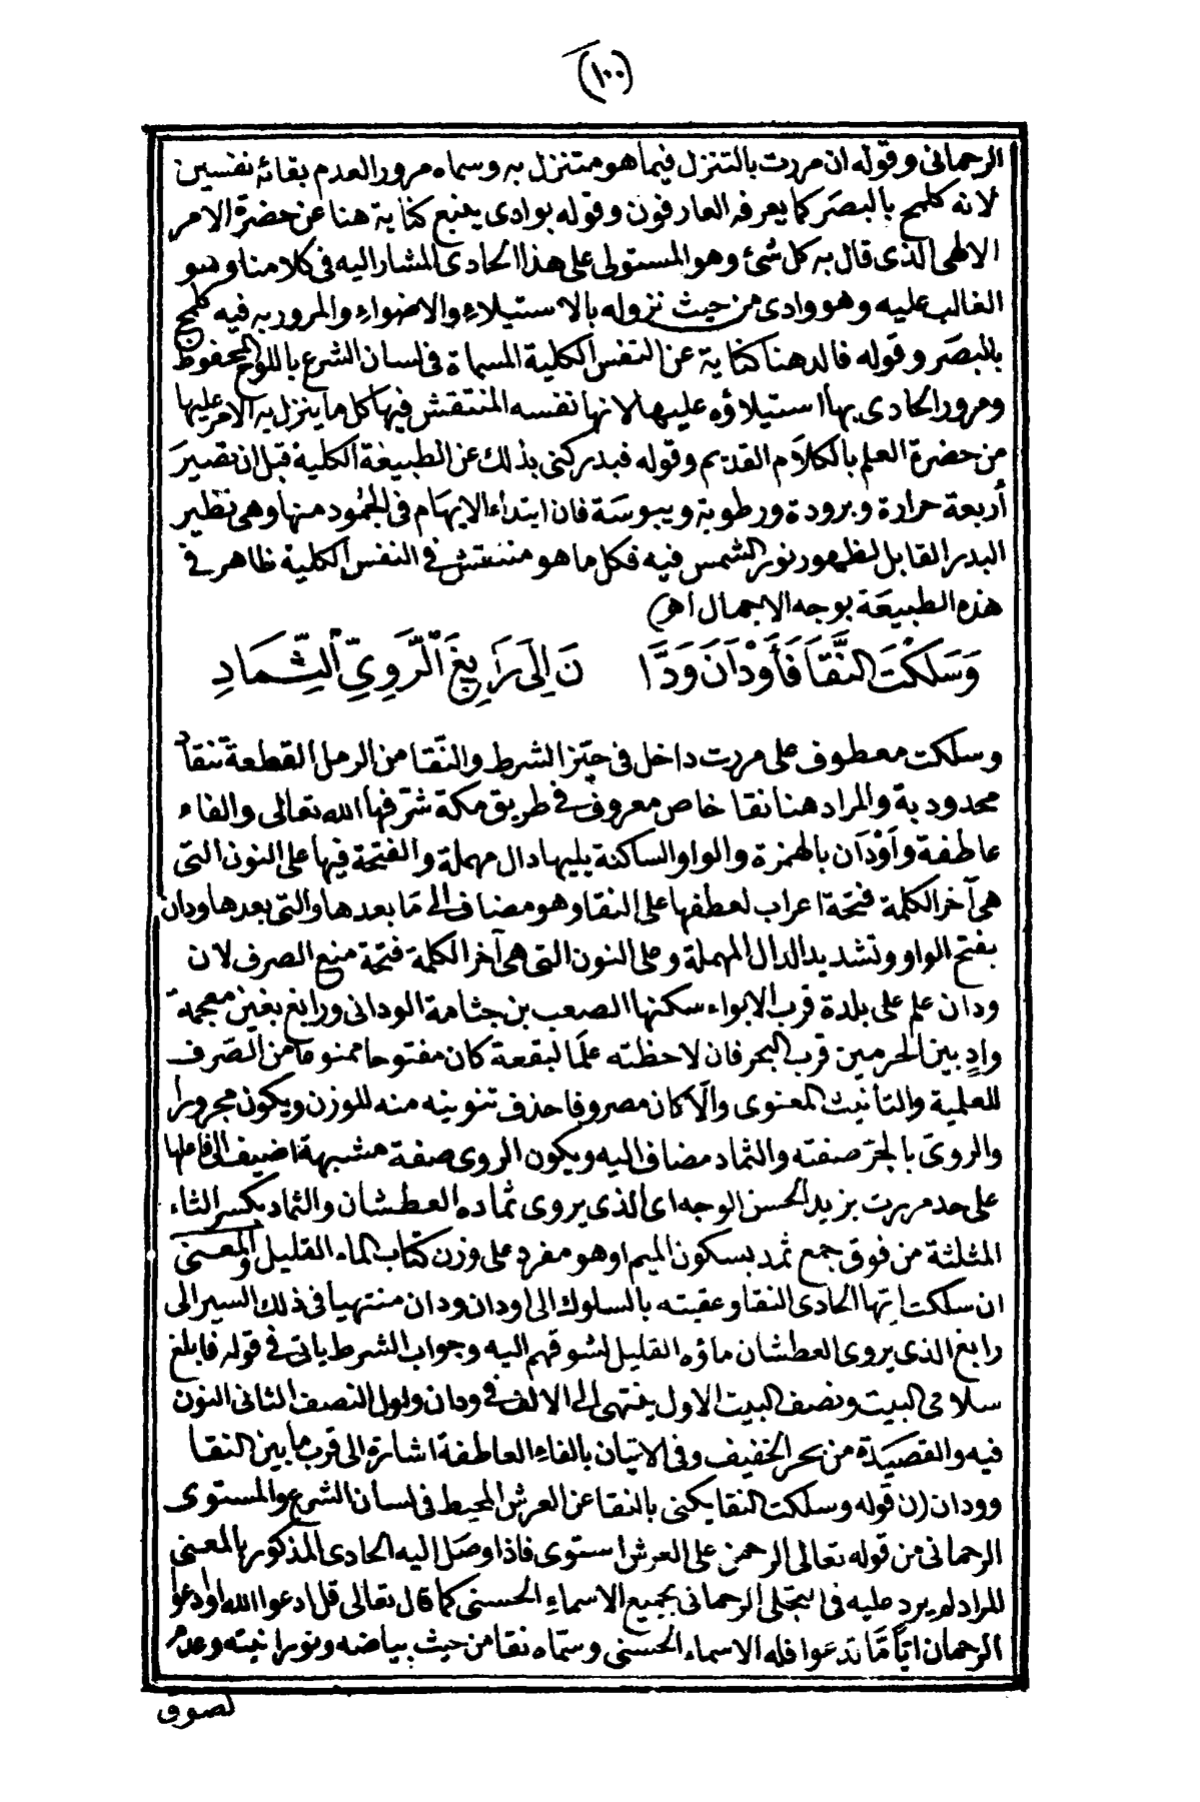 (١٠٠)
الرحمانى وقوله ان مررت بالتنزل فيما هو متنزل به وسماه مرور العدم بقائه نفسين
لانه كلمح بالبصَر كما يعرفه العارفون وقوله بوادى ينبع كناية هنا عن حضرة الامر
الالهى الذى قال به كل شئ وهو المستولى على هذا الحادى المشار اليه فى كلامنا وهو
الغالب عليه وهو وادى من حيث نزوله بالاستيلاءِ والاضواءِ والمرور به فيه كلمح
بالبصَر وقوله فالدهنا كناية عن النفس الكلية المسماة فى لسان الشرع باللوح المحفوظ
ومرور الحادى بها استيلاؤه عليها لانها نفسه المنتقش فيها كل ما ينزل به الامر عليها
من حضرة العلم بالكلاَم القديم وقوله فبدر كنى بذلك عن الطبيعة الكلية قبل ان تصير
أربعة حرارة وبرودة ورطوبة ويبوسَة فان ابتداء الابهَام فى الجمُود منها وهى نظير
البدر القابل لظهور نور الشمس فيه فكل ما هو منتقش فى النفس الكلية ظاهر فى
هذه الطبيعَة بوجه الاجمال اهـ)
وَسَلَكْتَ النَّقَا فَأَوْدَانَ وَدَّا نَ اِلَى رَابِغَ الْرَّوِيِّ الْثِّمَادِ
وسلكت معطوف على مررت داخل فى حيّز الشرط والنّقا من الرمل القطعة تنقاد
محدودبة والمراد هنا نقا خاص معروف فى طريق مكة شرّفها الله تعالى والفاء
عاطفة واَوْدَان بالهمزة والواو الساكنة يليها دال مهملة والفتحة فيها على النون التى
هى آخر الكلمة فتحة اعراب لعطفها على النقا وهو مضاف الى مَا بعدها والتى بعدها ودان
بفتح الواو وتشديد الدال المهملة وعلى النون التى هى آخر الكلمة فتحة منع الصرف لان
ودان علم على بلدة قرب الابواء سكنها الصعب بن جثامة الودانى ورابغ بغين معجمة
وادٍ بين الحرمين قرب البحر فان لاحظته علَما لبقعة كان مفتوحا ممنوعا من الصَّرف
للعلمية والتأنيث المعنوى والّا كان مصروفا حذف تنوينه منه للوزن ويكون مجرورا
والروىّ بالجرّ صفته والثماد مضاف اليه ويكون الروى صفة مشبهة اضيف الى فاعلها
على حد مررت بزيد الحسن الوجه اى الذى يروى ثماده العطشان والثماد بكسر الثاء
المثلثة من فوق جمع ثمد بسكون الميم او هو مفرد على وزن كتاب الماء القليل والمعنى
ان سلكت ايّها الحادى النقا وعقبته بالسلوك الى اودان ودان منتهيا فى ذلك السير الى
رابغ الذى يروى العطشان ماؤه القليل لشوقهم اليه وجواب الشرط ياتى فى قوله فابلغ
سلامى البيت ونصف البيت الاول ينتهى الى الالف فى ودان واول النصف الثانى النون
فيه والقصيَدة من بحر الخفيف وفى الاتيان بالفاءِ العاطفة اشارة الى قرب ما بين النقا
وودان (ن قوله وسلكت النقا يكنى بالنقا عن العرش المحيط فى لسان الشرع والمستوى
الرحمانى من قوله تعالى الرحمن على العرش استوى فاذا وصَل اليه الحادى المذكور بالمعنى
المراد له يرد عليه فى التجلى الرحمانى بجميع الاسماءِ الحسنى كما قال تعالى قل ادعوا الله او ادعوا
الرحمان ايّاً مَّا تدعوا فله الاسماء الحسنى وسمّاه نقا من حيث بياضه ونورانيته وعدم
لصوق